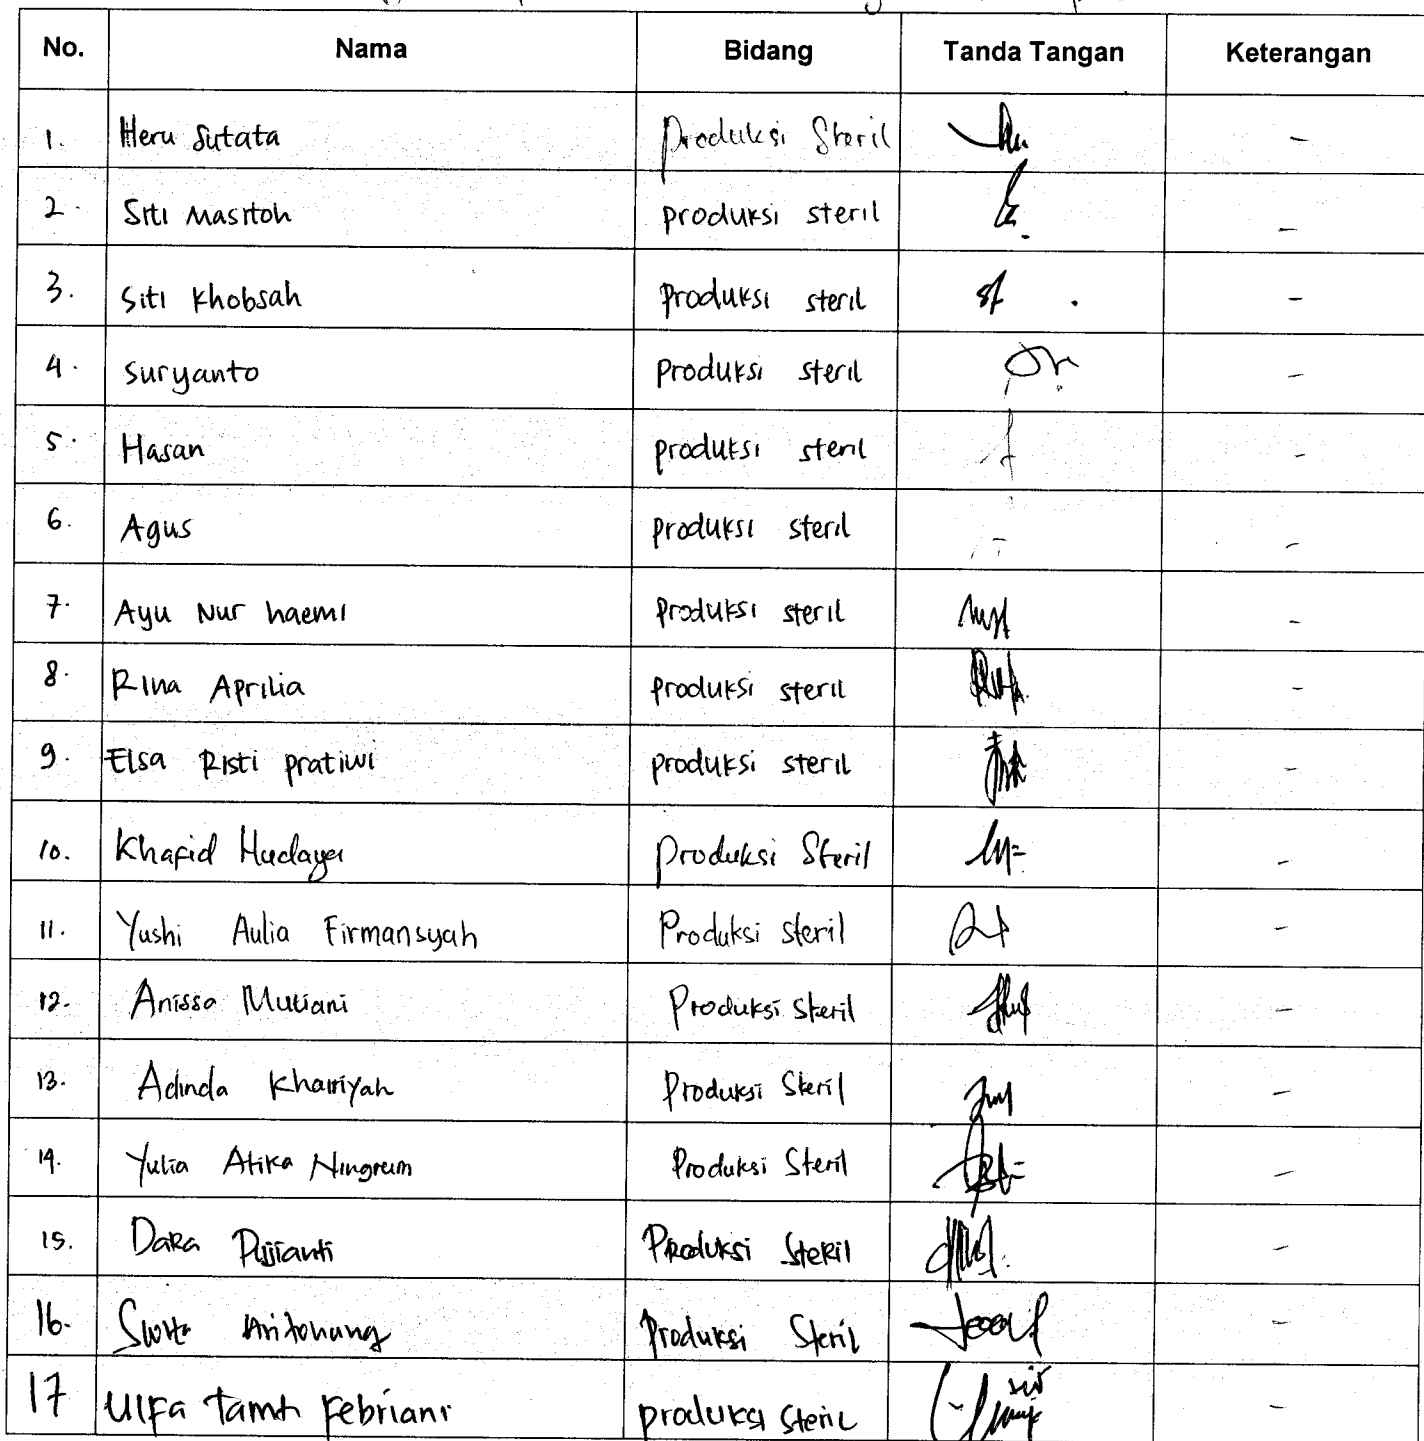 No. Nama Bidang Tanda Tangan Keterangan
1. Heru Sutata Produksi Steril -
2. Siti Masitoh produksi steril -
3. Siti Khobsah produksi steril -
4. Suryanto produksi steril -
5. Hasan produksi steril -
6. Agus produksi steril -
7. Ayu Nur haemi produksi steril -
8. Rina Aprilia produksi steril -
9. Elsa Risti pratiwi produksi steril -
10. Khafid Hudaya Produksi Steril -
11. Yushi Aulia Firmansyah Produksi Steril -
12. Anissa Mutiani Produksi Steril -
13. Adinda Khairiyah Produksi Steril -
14. Yulia Atika Ningrum Produksi Steril -
15. Dara Pujianti Produksi Steril -
16. Aritonang Produksi Steril -
17 Ulfa Febriani produksi steril -